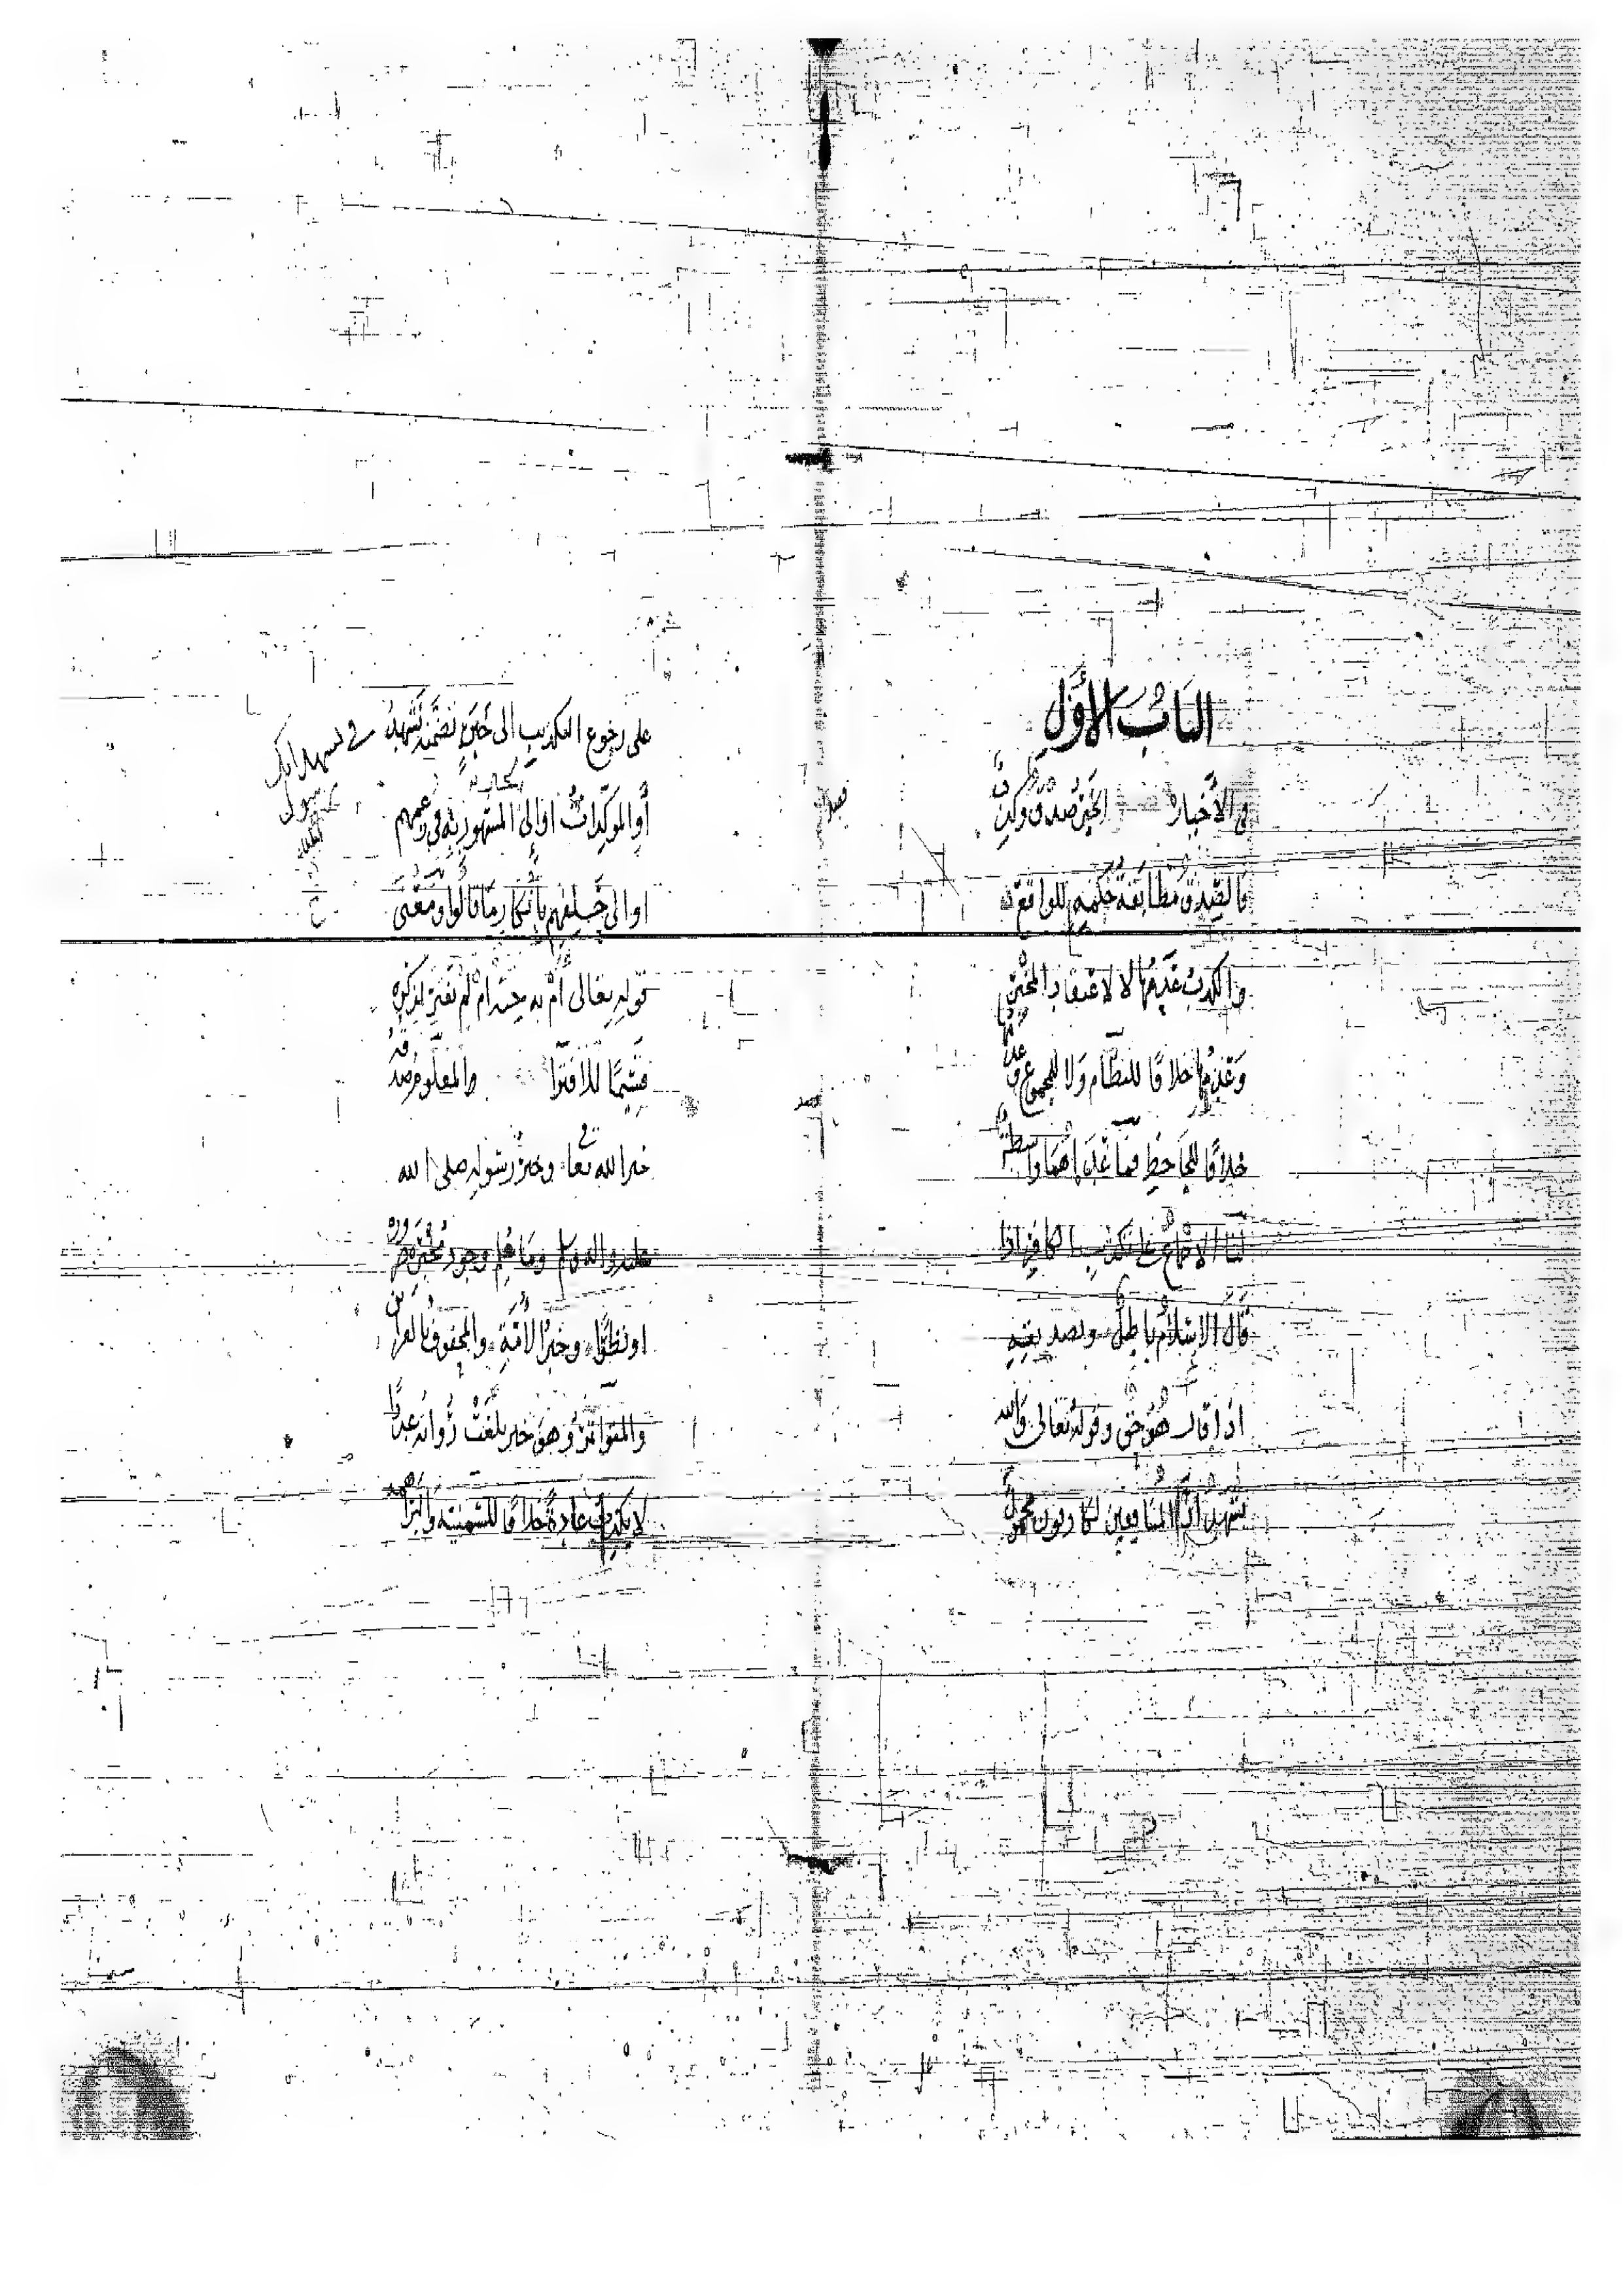 الباب الأول
في الأخبار الخبر صدق وكذب
فالصدق مطابقة حكمه للواقع
والكذب عدمها لا لاعتقاد المخبر
وعدمها خلافًا للنظام ولا للمجموع
خلافًا للجاحظ فما عداهما واسطة
لنا الإجماع على تكذيب الكافر إذا
قال الإسلام باطل وتصديقه
إذا قال هو حق وقوله تعالى والله
يشهد إن المنافقين لكاذبون محمول
على رجوع التكذيب إلى خبر تضمنه نشهد
أو المؤكدات أو إلى المشهور به في زعمهم
أو إلى حلفهم بإنكار ما قالوا ومعنى
قوله تعالى أم به جنة أم لم يفتر لذكره
قسيمًا للافترا والمعلوم صدقه
خبر الله تعا وخبر رسوله صلى الله
عليه واله وسلم وما علم وجود مخبره ضرورة
أو نظرًا وخبر الأمة والمحفوف بالقراين
والمتواتر وهو خبر بلغت رواته عددًا
لا يكذب عادة خلافًا للسمنية والبراهمة